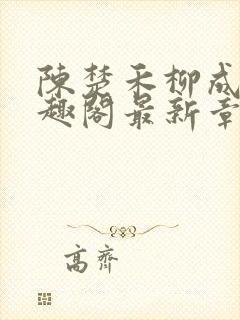 陳楚禾柳成
趣閣最新章
高齊